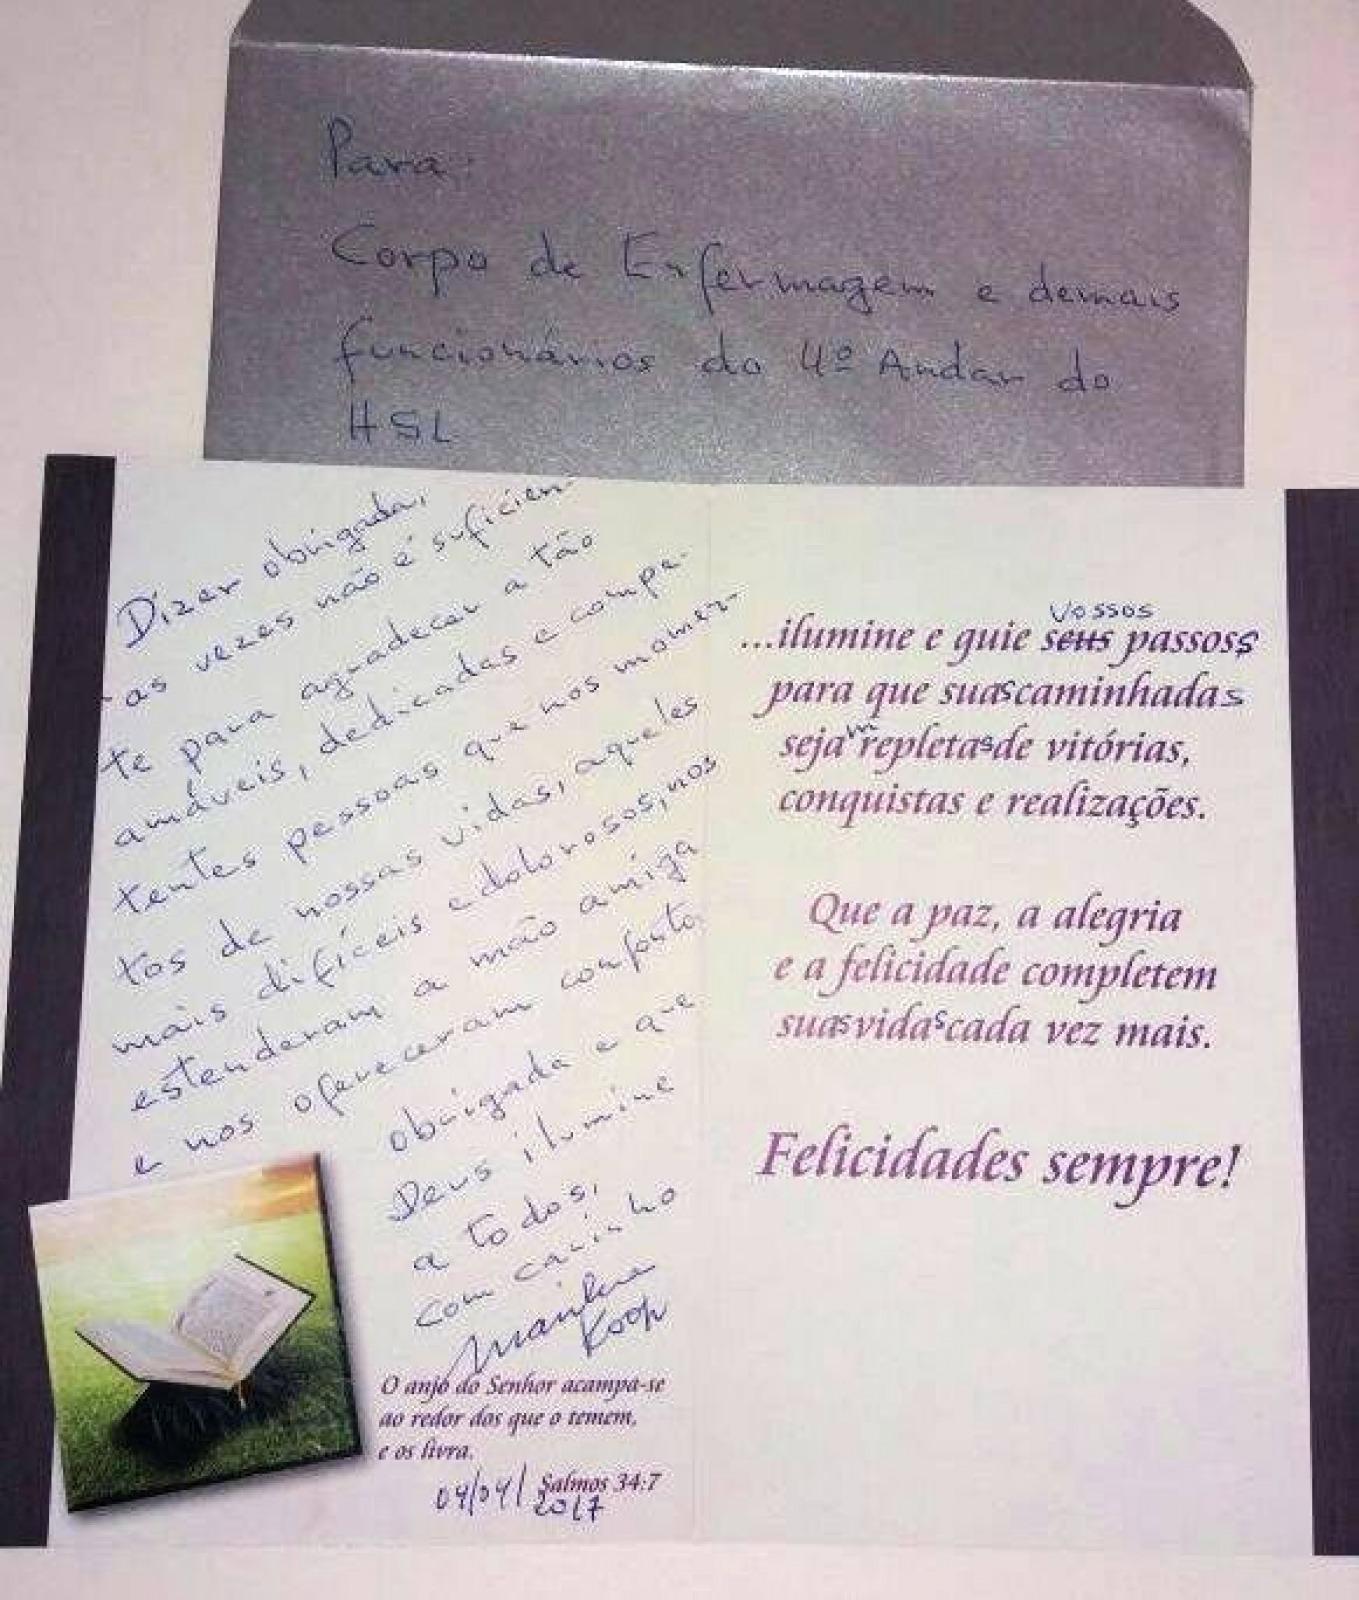 Para:
Corpo de Enfermagem e demais
funcionários do 4º Andar do
HSL
Dizer obrigada,
as vezes não é suficien-
te para agradecer a tão
amáveis, dedicadas e compe-
tentes pessoas que nos momen-
tos de nossas vidas, aqueles
mais difíceis e dolorosos, nos
estenderam a mão amiga
e nos ofereceram conforto.
Obrigada e que
Deus ilumine
a todos,
com carinho
Koop
O anjo do Senhor acampa-se
ao redor dos que o temem,
e os livra.
Salmos 34:7
04/04/2017
vossos
...ilumine e guie seus passos
para que suas caminhadas
sejam repletas de vitórias,
conquistas e realizações.
Que a paz, a alegria
e a felicidade completem
suas vidas cada vez mais.
Felicidades sempre!